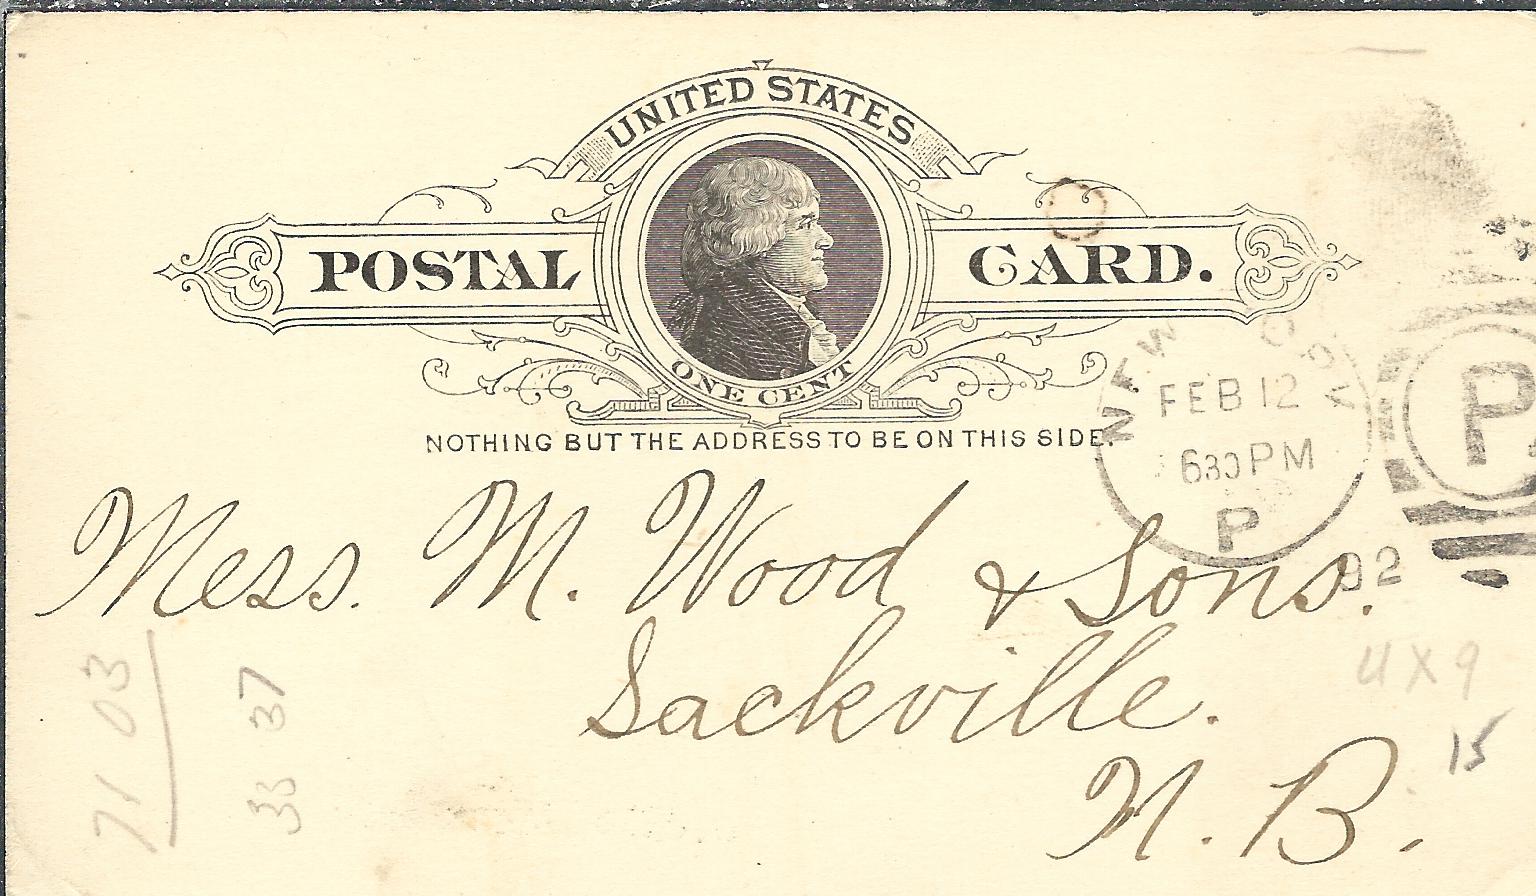 UNITED STATES
POSTAL CARD.
ONE CENT
NOTHING BUT THE ADDRESS TO BE ON THIS SIDE.
NEW
FEB 12
630 PM
P
92
P
Mess. M. Wood & Sons.
Sackville.
N. B.
71 03
33 37
UX9
15